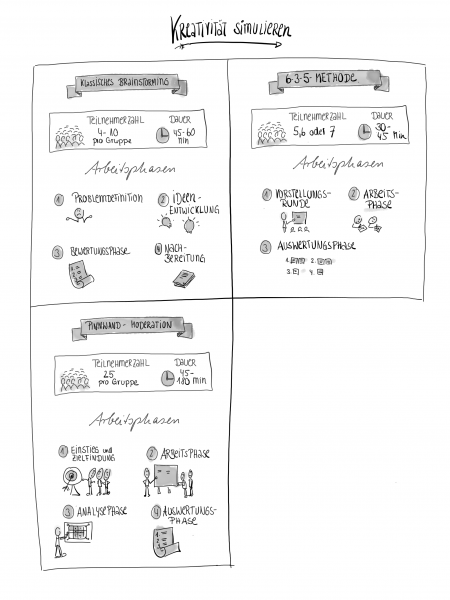 KREATIVITÄT SIMULIEREN
KLASSISCHES BRAINSTORMING
TEILNEHMERZAHL
4-10
pro Gruppe
DAUER
45-60
min
Arbeitsphasen
1 PROBLEMDEFINITION
2 iDEEN-
ENTWICKLUNG
3 BEWERTUNGSPHASE
4 NACH-
BEREITUNG
6-3-5-METHODE
TEILNEHMERZAHL
5,6 oder 7
DAUER
30-
45 Min
Arbeitsphasen
1 VORSTELLUNGS-
RUNDE
2 ARBEITS-
PHASE
3 AUSWERTUNGSPHASE
1. 2.
3. 4.
PINNWAND-MODERATION
TEILNEHMERZAHL
25
pro Gruppe
DAUER
45-
180 min
Arbeitsphasen
1 EINSTIEG und
ZIELFINDUNG
2 ARBEITSPHASE
3 ANALYSEPHASE
4 AUSWERTUNGS-
PHASE